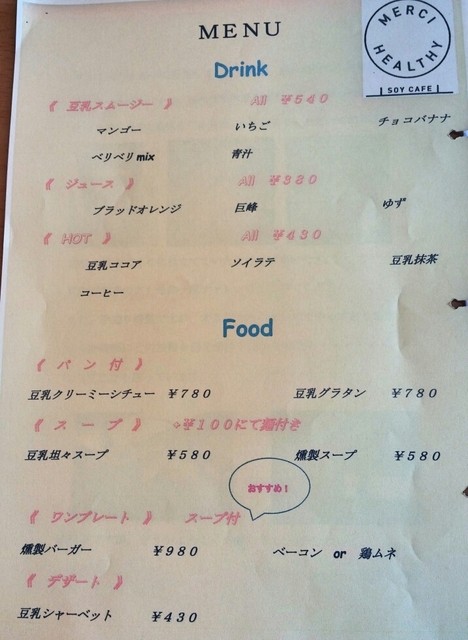 MENU
MERCI
HEALTHY
SOY CAFE
Drink
《 豆乳スムージー 》 All ¥540
マンゴー いちご チョコバナナ
ベリベリmix 青汁
《 ジュース 》 All ¥380
ブラッドオレンジ 巨峰 ゆず
《 HOT 》 All ¥430
豆乳ココア ソイラテ 豆乳抹茶
コーヒー
Food
《 パン付 》
豆乳クリーミーシチュー ¥780 豆乳グラタン ¥780
《 スープ 》 +¥100にて麺付き
豆乳坦々スープ ¥580 燻製スープ ¥580
おすすめ！
《 ワンプレート 》 スープ付
燻製バーガー ¥980 ベーコン or 鶏ムネ
《 デザート 》
豆乳シャーベット ¥430